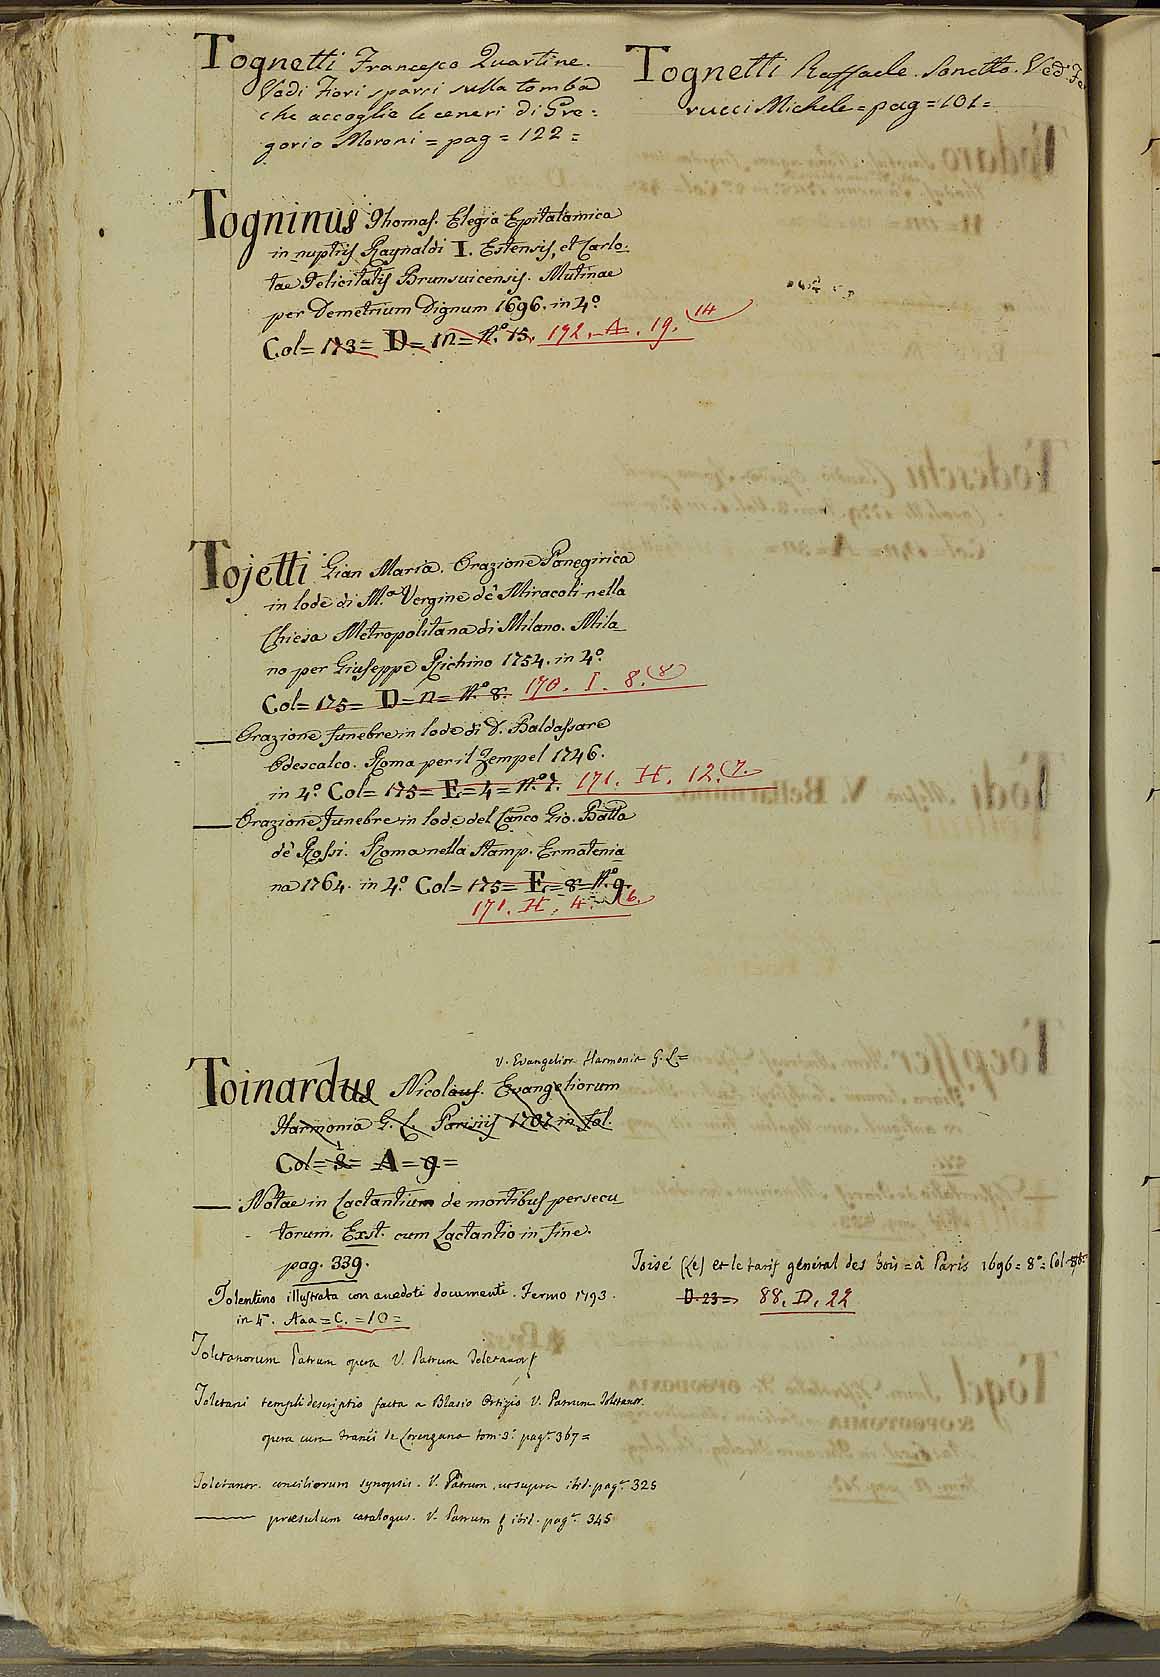 Tognetti Francesco Quartine.
Vedi Fiori sparsi sulla tomba
che accoglie le ceneri di Gre=
gorio Moroni = pag = 122 =
Tognetti Raffaele. Sonetto. Ved. Fe
rucci Michele = pag = 101 =
Togninus Thomas. Elegia Epitalamica
in nuptiis Raynaldi I. Estensis, et Carlo=
tae Felicitatis Brunsuicensis. Mutinae
per Demetrium Dignum 1696. in 4.º
Col= 173= D= in= N.º 15. 192. A. 19. 14
Tojetti Gian Maria. Orazione Panegirica
in lode di M.ª Vergine dè Miracoli nella
Chiesa Metropolitana di Milano. Mila
no per Giuseppe Richino 1754. in 4.º
Col= 175= D= n= N.º 8. 170. I. 8. (8
— Orazione funebre in lode di D. Baldassare
Odescalco. Roma per il Zempel 1746.
in 4.º Col= 175= E= 4= N.º 7. 171. H. 12. (7.
— Orazione funebre in lode del Canco Gio. Batta
dè Rossi. Roma nella Stamp. Ermatenia
na 1764. in 4.º Col= 175= E= 8= N.º 9.
171. H. 4. (6.
V. Evangelior. Harmonia G. L.=
Toinardus Nicolaus. Evangeliorum
Harmonia G. L. Parisiis 1707. in fol.
Col= 8= A= 9=
— Notae in Lactantium de mortibus persecu
torum. Exst. cum Lactantio in fine.
pag. 339.
Toisé (Le) et le tarif général des bois = à Paris 1696 = 8.º = Col
D. 23 = 88. D. 22
Tolentino illustrata con anedoti documenti. Fermo 1793.
in 4.º Aaa = C. = 10 =
Toletanorum Patrum opera V. Patrum Toletanor
Toletani templi descriptio facta a Blasio Ortizio V. Patrum Toletanor.
opera cura Franci de Lorenzana tom. 3.º pag.ª 367 =
Toletanor. conciliorum synopsis. V. Patrum, ut supra ibid. pag.ª 325
— praesulum catalogus. V. Patrum ibid. pag.ª 345